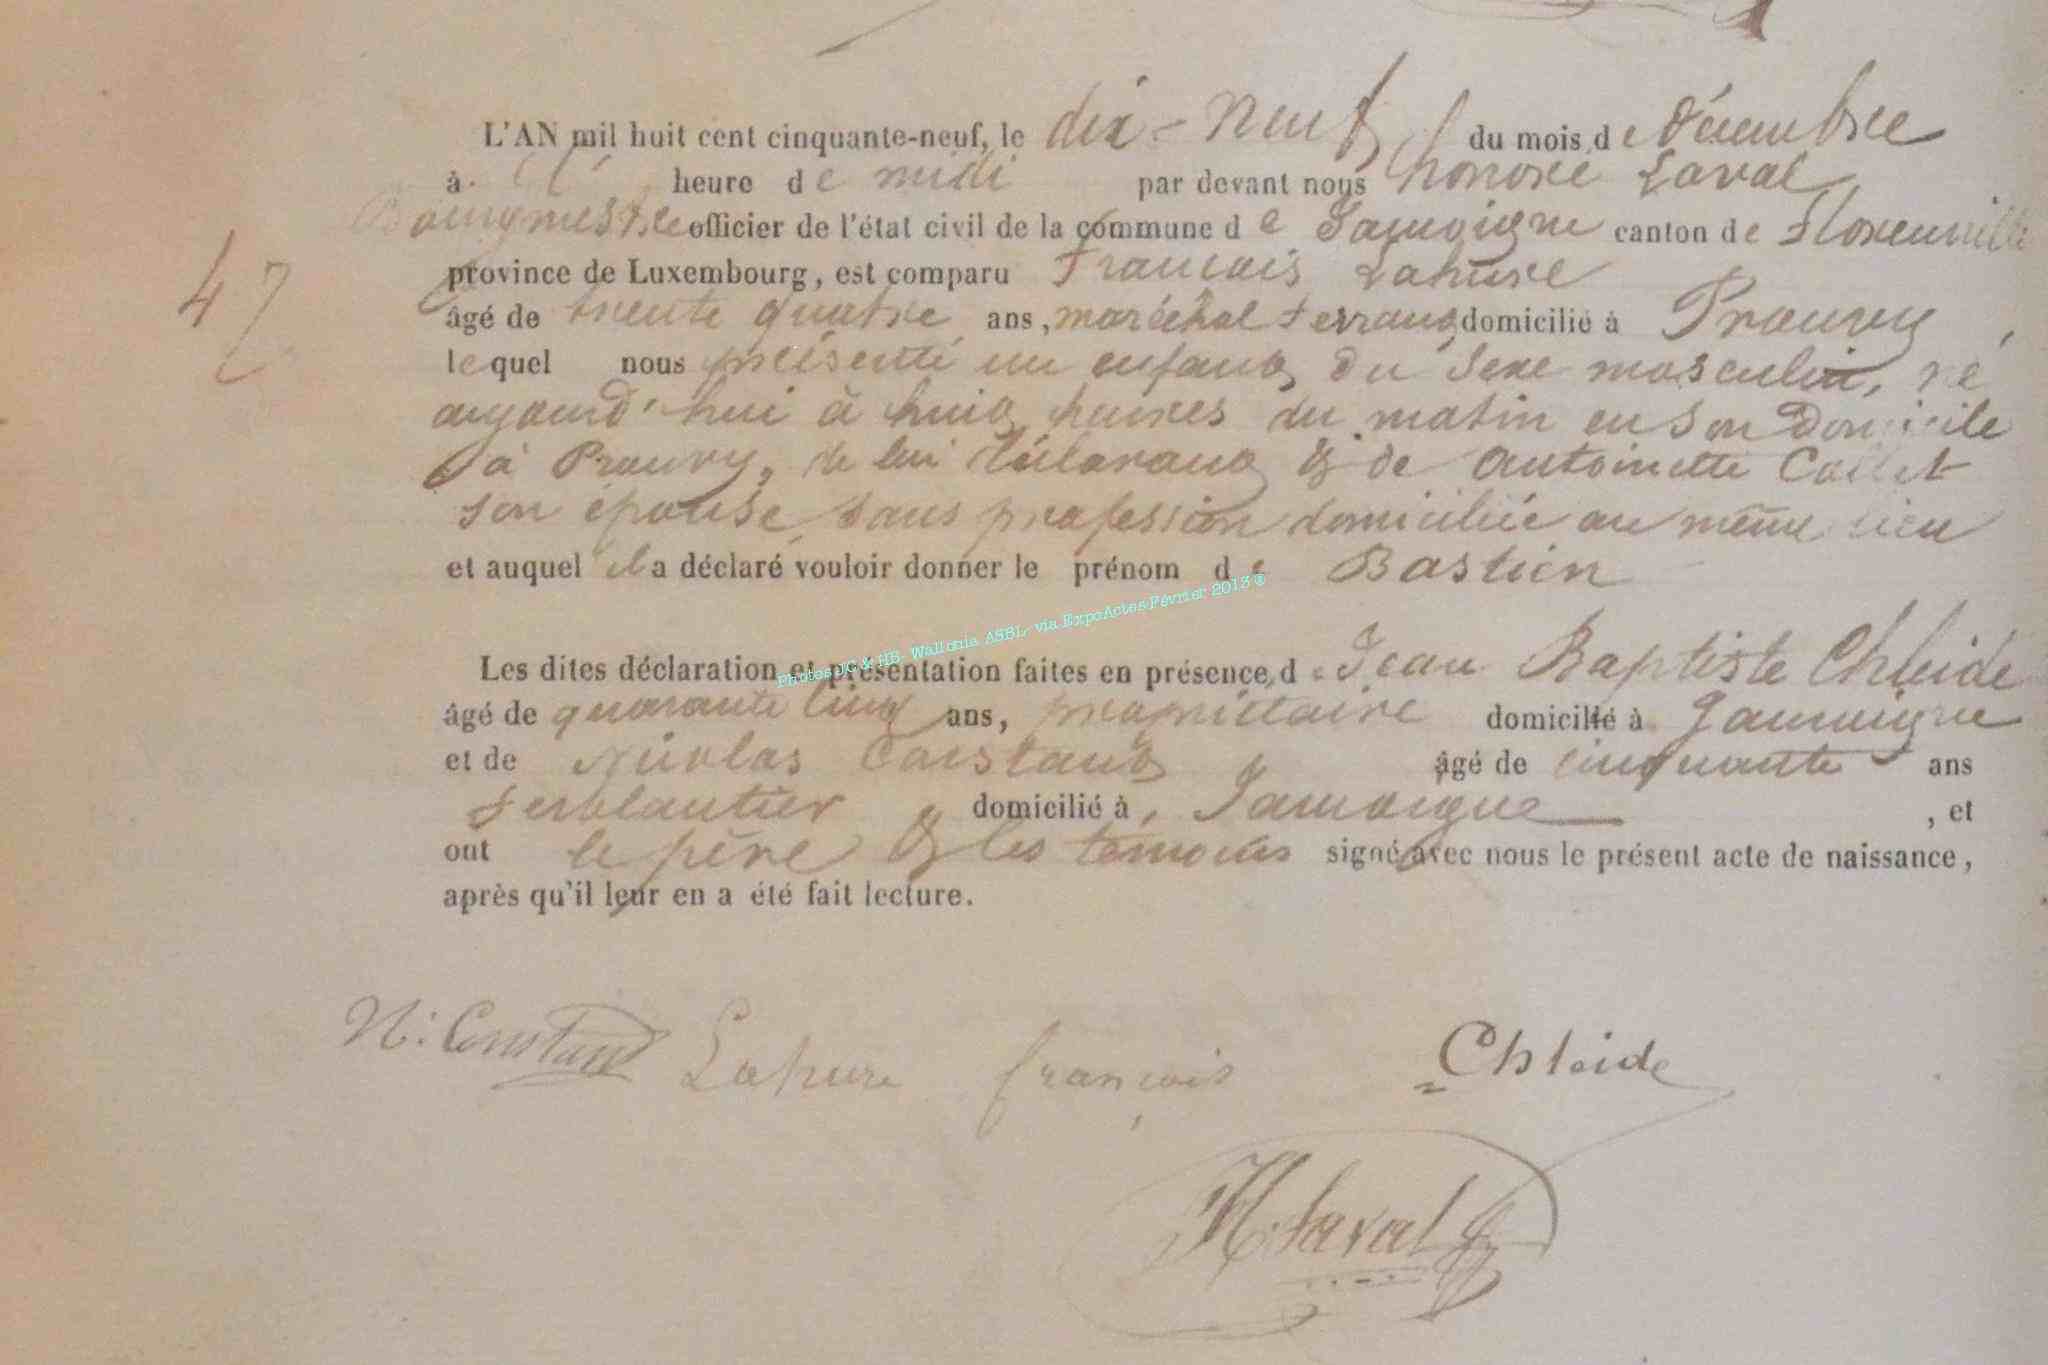 L'AN mil huit cent cinquante-neuf, le dix-neuf du mois de Décembre
à l' heure de midi par devant nous honoré Laval
Bourgmestre officier de l'état civil de la commune de Jamoigne canton de Florenville
province de Luxembourg, est comparu François Lahure
âgé de trente quatre ans, maréchal ferrant, domicilié à Prouvy,
lequel nous présenté un enfant du sexe masculin, né
aujourd'hui à huit heures du matin en son Domicile
à Prouvy, de lui déclarant & de Antoinette Collet
son épouse, sans profession domiciliée au même lieu
et auquel il a déclaré vouloir donner le prénom de Bastien
Photos JC & HB- Wallonia ASBL- via ExpoActes Février 2013 ®
Les dites déclaration et présentation faites en présence de Jean Baptiste Chleide
âgé de quarante cinq ans, propriétaire domicilié à Jamoigne
et de Nicolas Constant âgé de cinquante ans
ferblantier domicilié à, Jamoigne , et
ont le père & les témoins signé avec nous le présent acte de naissance,
après qu'il leur en a été fait lecture.
47
N: Constant Lahure françois Chleide
H. Laval